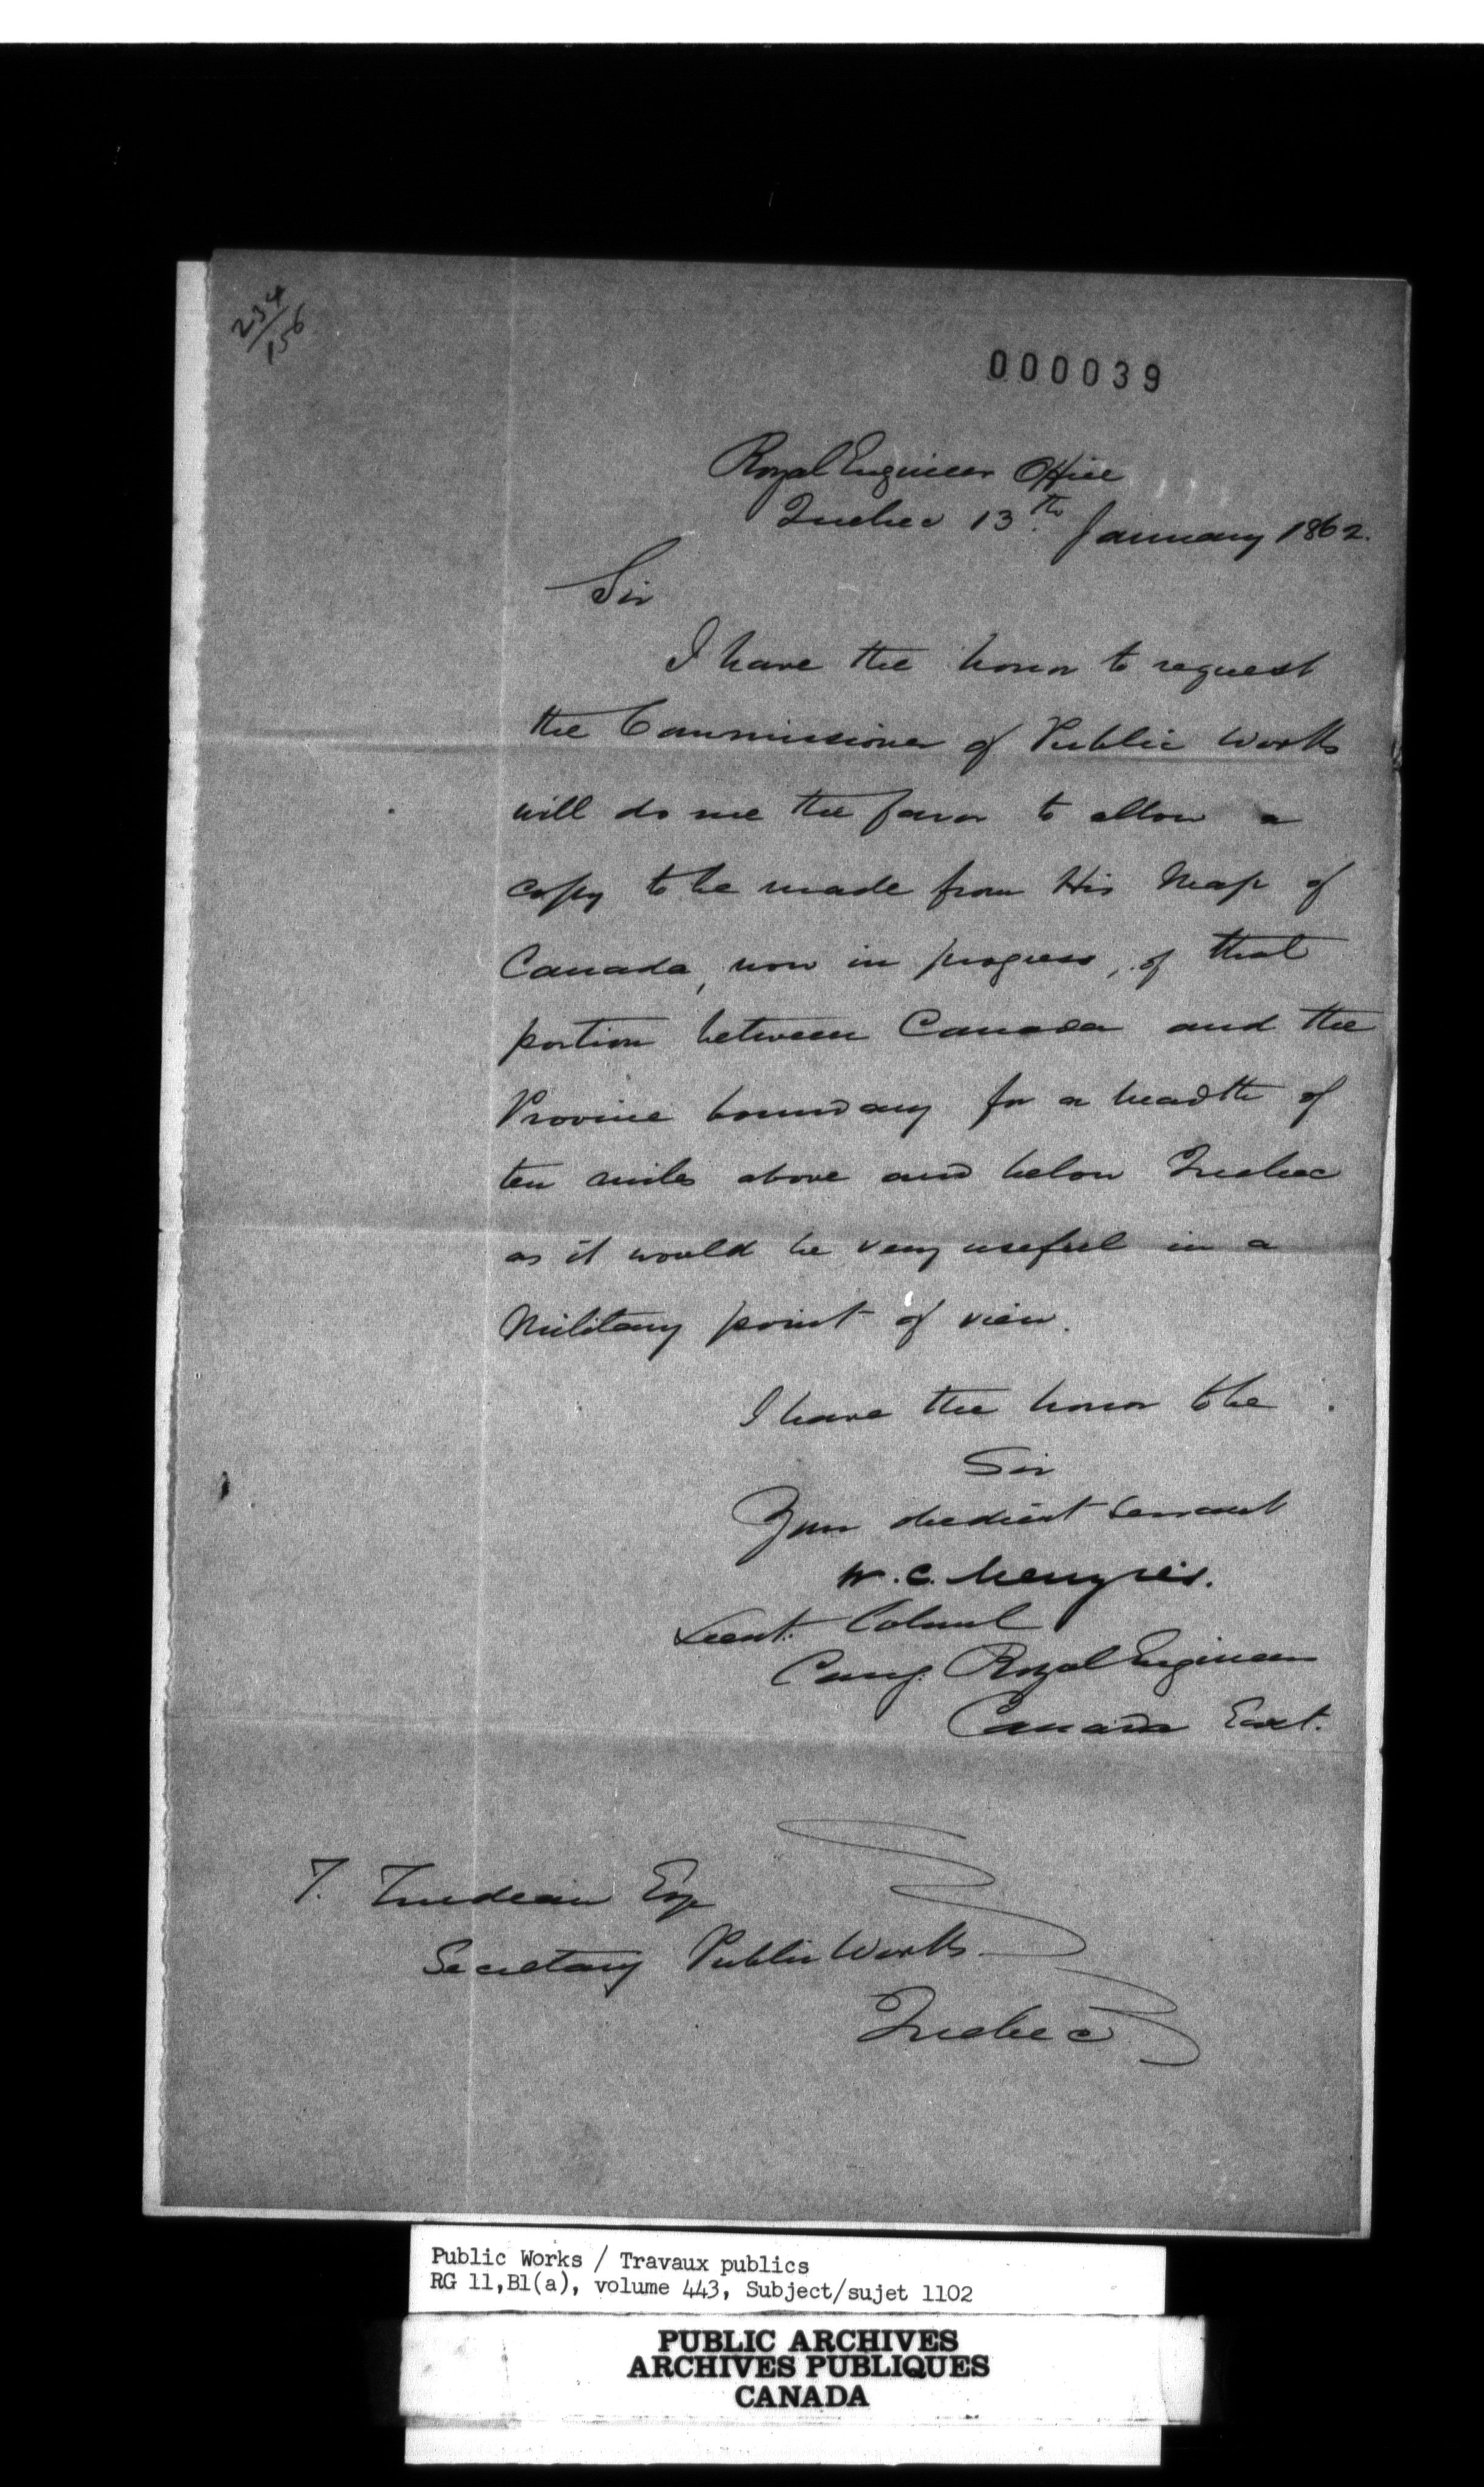 234/156
000039
Royal Engineer Office
Quebec 13th January 1862.
Sir
I have the honor to request
the Commissioner of Public Works
will do me the favor to allow a
copy to be made from His Map of
Canada, now in progress, of that
portion between Canada and the
Province boundary for a breadth of
ten miles above and below Quebec
as it would be very useful in a
Military point of view.
I have the honor to be
Sir
Your obedient servant
W. C. Menzies.
Lieut. Colonel
Comg. Royal Engineer
Canada East.
T. Trudeau Esq
Secretary Public Works
Quebec
Public Works / Travaux publics
RG 11,B1(a), volume 443, Subject/sujet 1102
PUBLIC ARCHIVES
ARCHIVES PUBLIQUES
CANADA